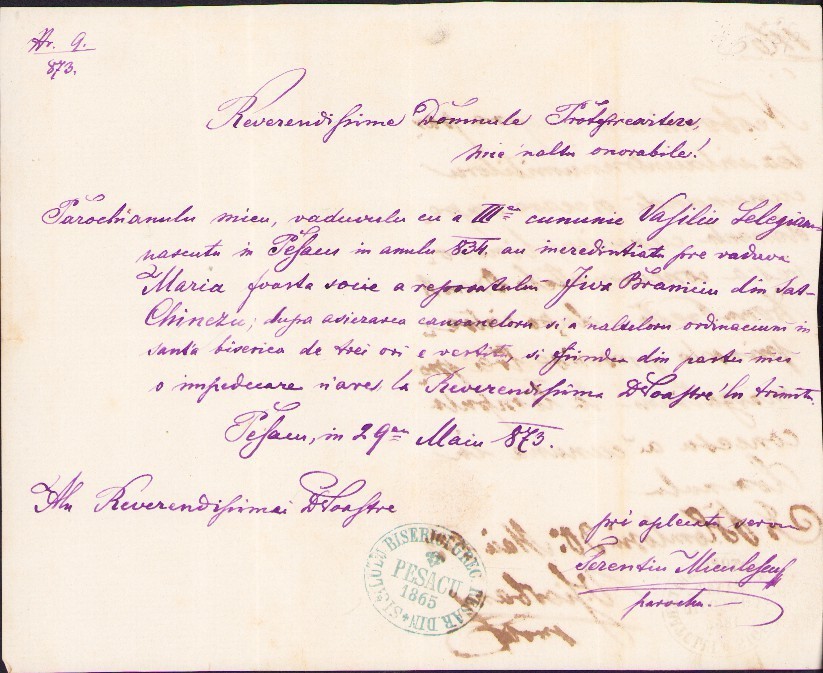 Nr. 9.
873.
Reverendissime Domnule Protopresvitere,
mie naltu onorabile!
Parochianulu mieu, vaduvulu cu a III.a cununie Vasiliu Selegianu
nascutu in Pesacu in anulu 834. au incredintiatu pre vaduva
Maria fosta socie a reposatului Jiva Branciu din Sat-
Chinezu; dupa asiezarea canoaneloru si a 'nalteloru ordinaciuni in
santa biserica de trei ori e vestitu, si fiindca din partea mea
o impedecare n'are la Reverendissima D'Voastre 'lu trimitu.
Pesacu, in 29 Maiu 873.
Alu Reverendissimei D'Voastre
pré aplecatu servu
Terentiu Miculescu
parochu.
SIGILULU BISERICI GREC. RESAR. DIN
PESACU
1865